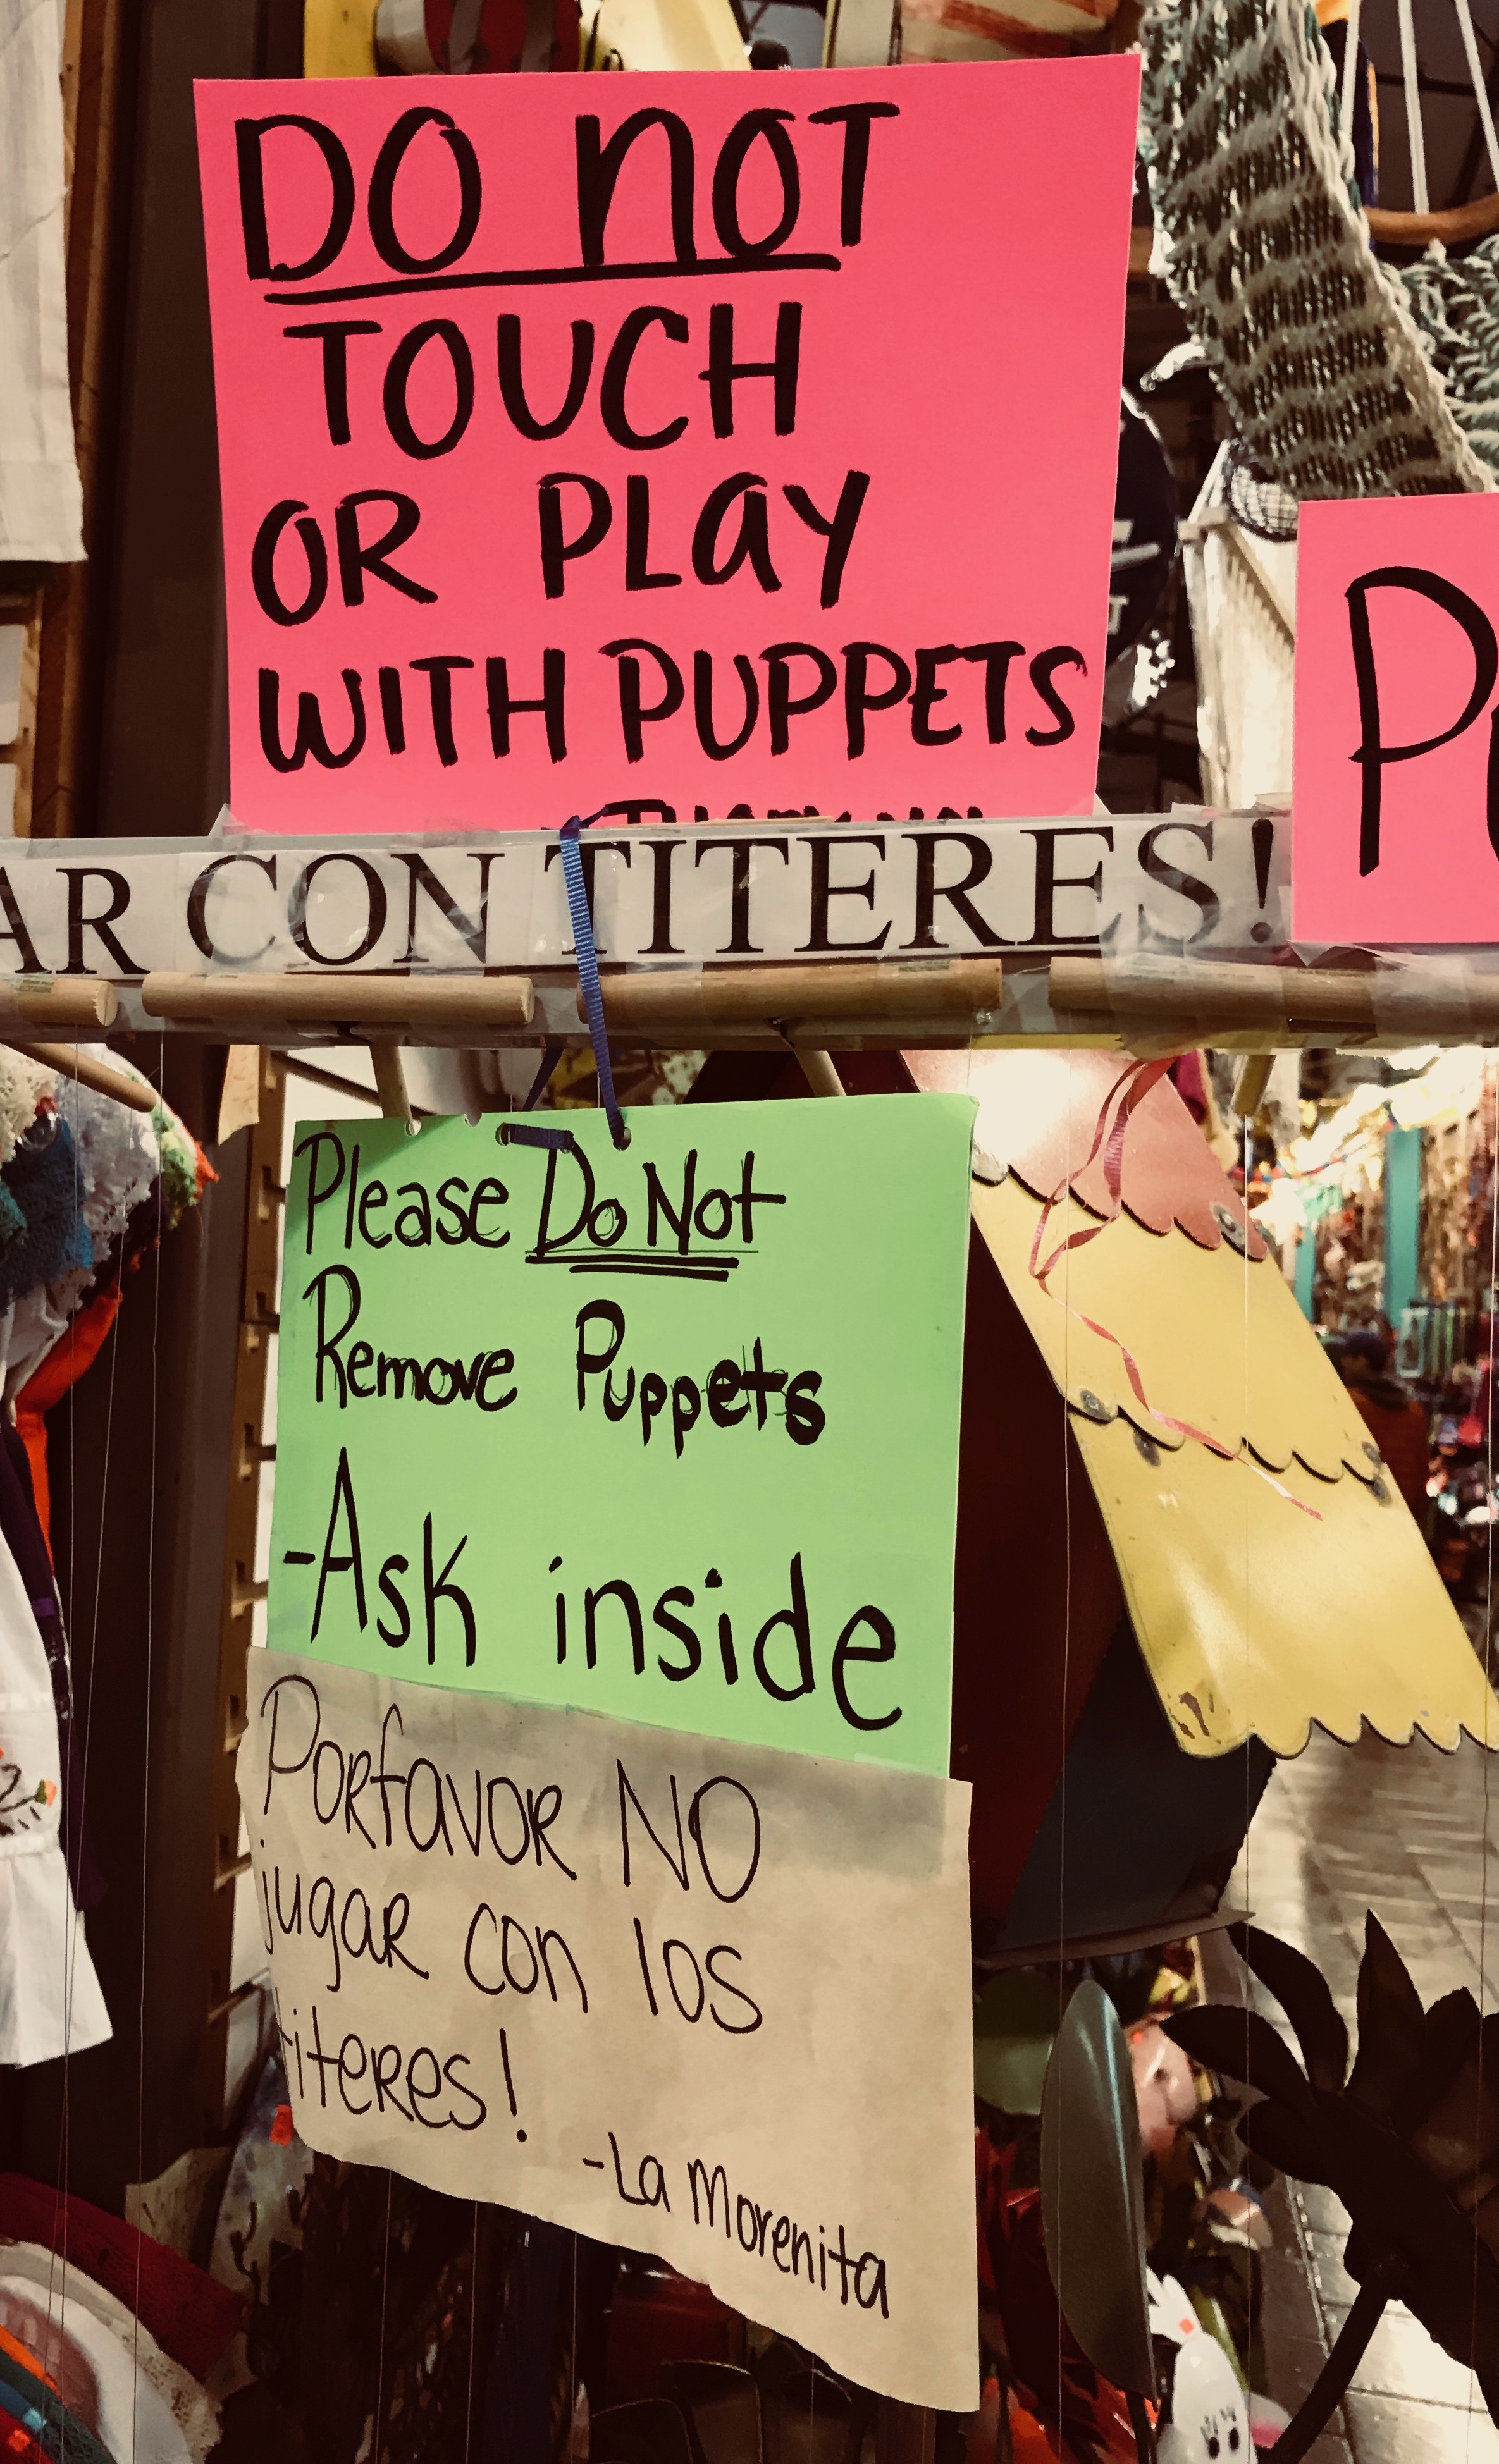 DO NOT
TOUCH
OR PLAY
WITH PUPPETS
AR CON TITERES!
Please Do Not
Remove Puppets
-Ask inside
Porfavor NO
jugar con los
titeres!
-La Morenita